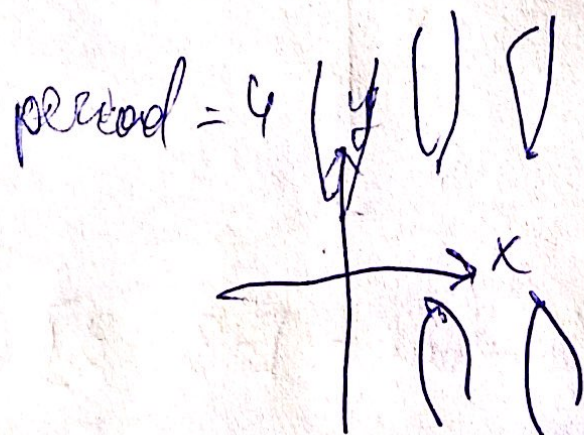 period = 4
y
x